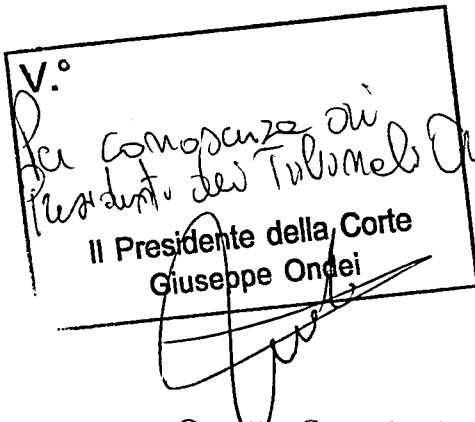 V.°
conoscenza ai
Presidenti dei Tribunali
Il Presidente della Corte
Giuseppe Ondei